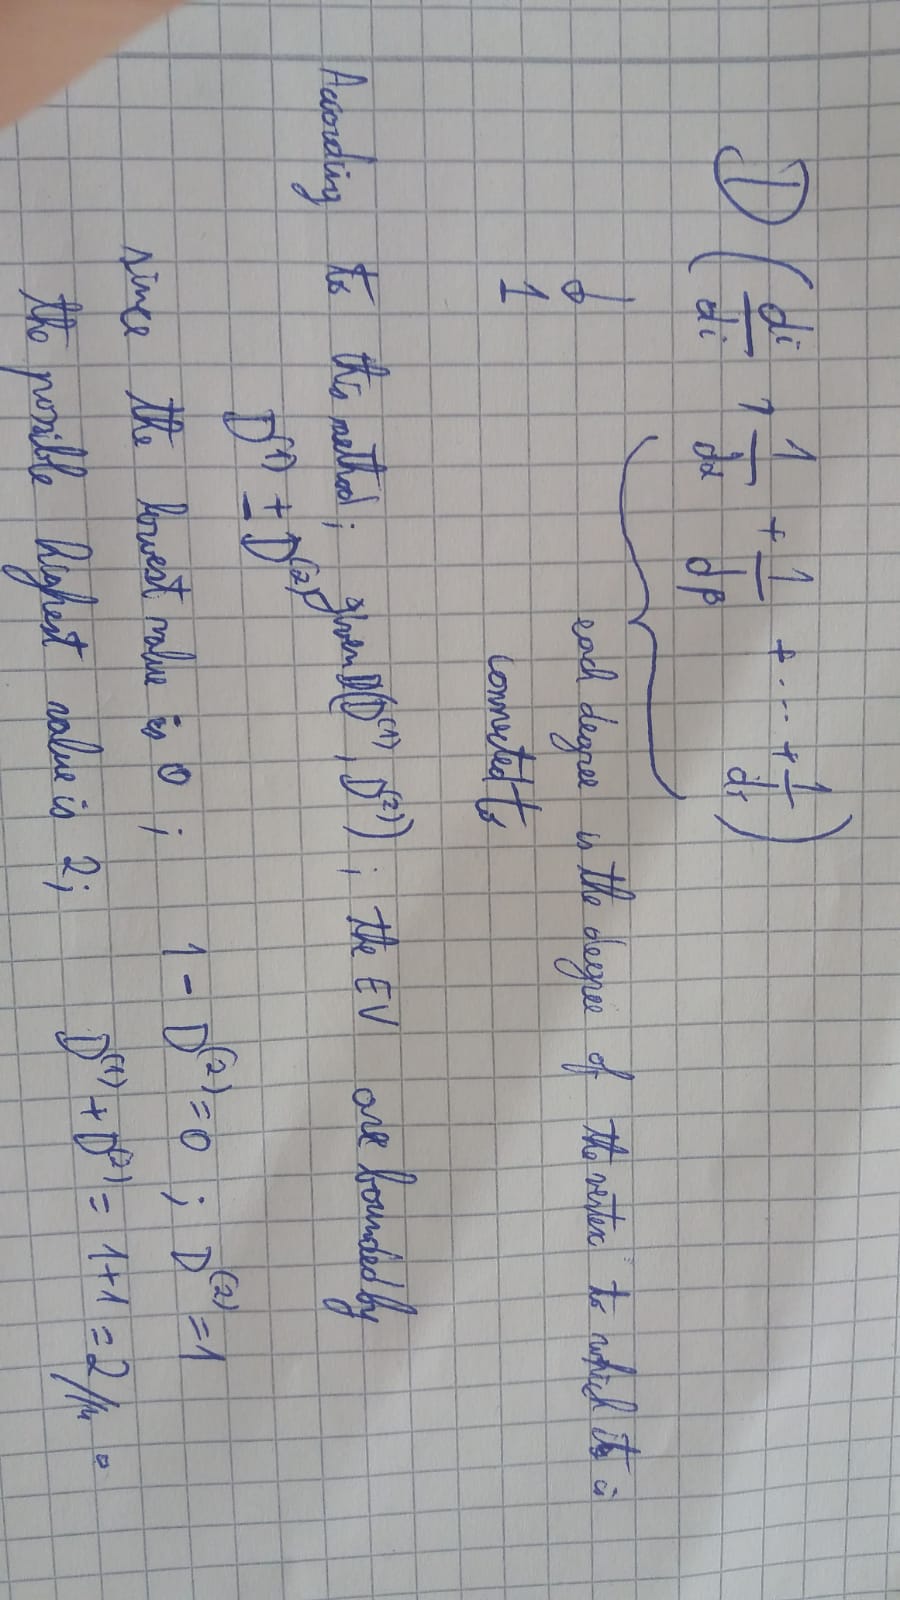 D ( di/di , 1/dα + 1/dβ + ... + 1/dr )
↓
1
each degree is the degree of the vertex to which its is
connected to
According to this method; given D(D⁽¹⁾, D⁽²⁾); the EV are bounded by
D⁽¹⁾ ± D⁽²⁾
since the lowest value is 0; 1 - D⁽²⁾ = 0 ; D⁽²⁾ = 1
the possible highest value is 2; D⁽¹⁾ + D⁽²⁾ = 1+1 = 2